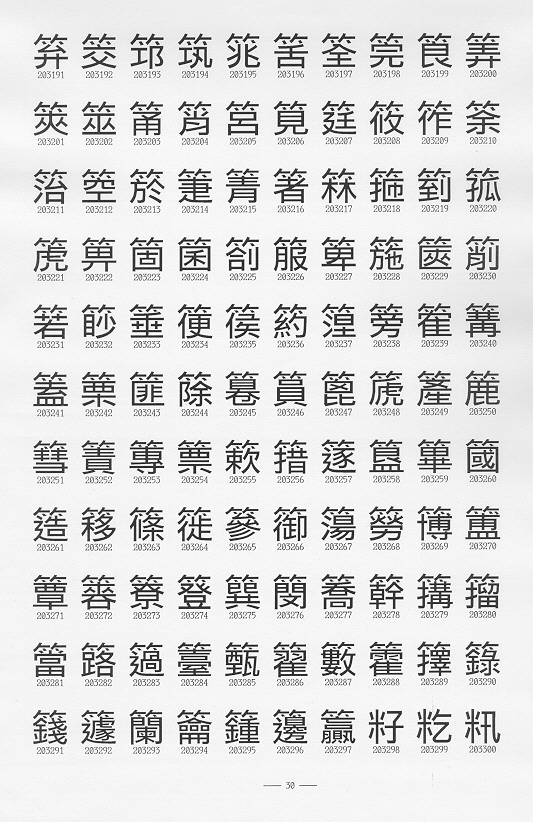 筊 筇 筑 筄 筈 筌 筦 筤 筭
203191 203192 203193 203194 203195 203196 203197 203198 203199 203200
筴 筮 筩 筲 筥 筧 筳 筱 筰 筡
203201 203202 203203 203204 203205 203206 203207 203208 203209 203210
箜 箊 箐 箸 箖 箌 箛
203211 203212 203213 203214 203215 203216 203217 203218 203219 203220
箎 箅 箇 箘 箚 箙 箄 箷 篋
203221 203222 203223 203224 203225 203226 203227 203228 203229 203230
箬 箠 箯 篌 箹 篁 篣 篝
203231 203232 203233 203234 203235 203236 203237 203238 203239 203240
篥 篚 篨 篔 篦 篪 簅 簏
203241 203242 203243 203244 203245 203246 203247 203248 203249 203250
篲 簀 篿 篻 簌 簎 篳 簂
203251 203252 203253 203254 203255 203256 203257 203258 203259 203260
簉 簃 篠 簁 篸 篽 簜 簩 簙 簠
203261 203262 203263 203264 203265 203266 203267 203268 203269 203270
簟 簝 簦 簨 簥 簳 籀
203271 203272 203273 203274 203275 203276 203277 203278 203279 203280
簹 簬 簻 籉 籊 籔 籗 籜 籙
203281 203282 203283 203284 203285 203286 203287 203288 203289 203290
籛 籧 籣 籥 籦 籩 籯 籽 籺 籸
203291 203292 203293 203294 203295 203296 203297 203298 203299 203300
— 30 —